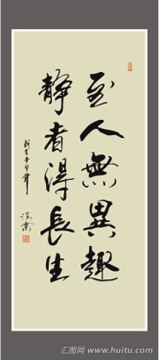 至人無異趣
静者得長生
汇图网 www.huitu.com